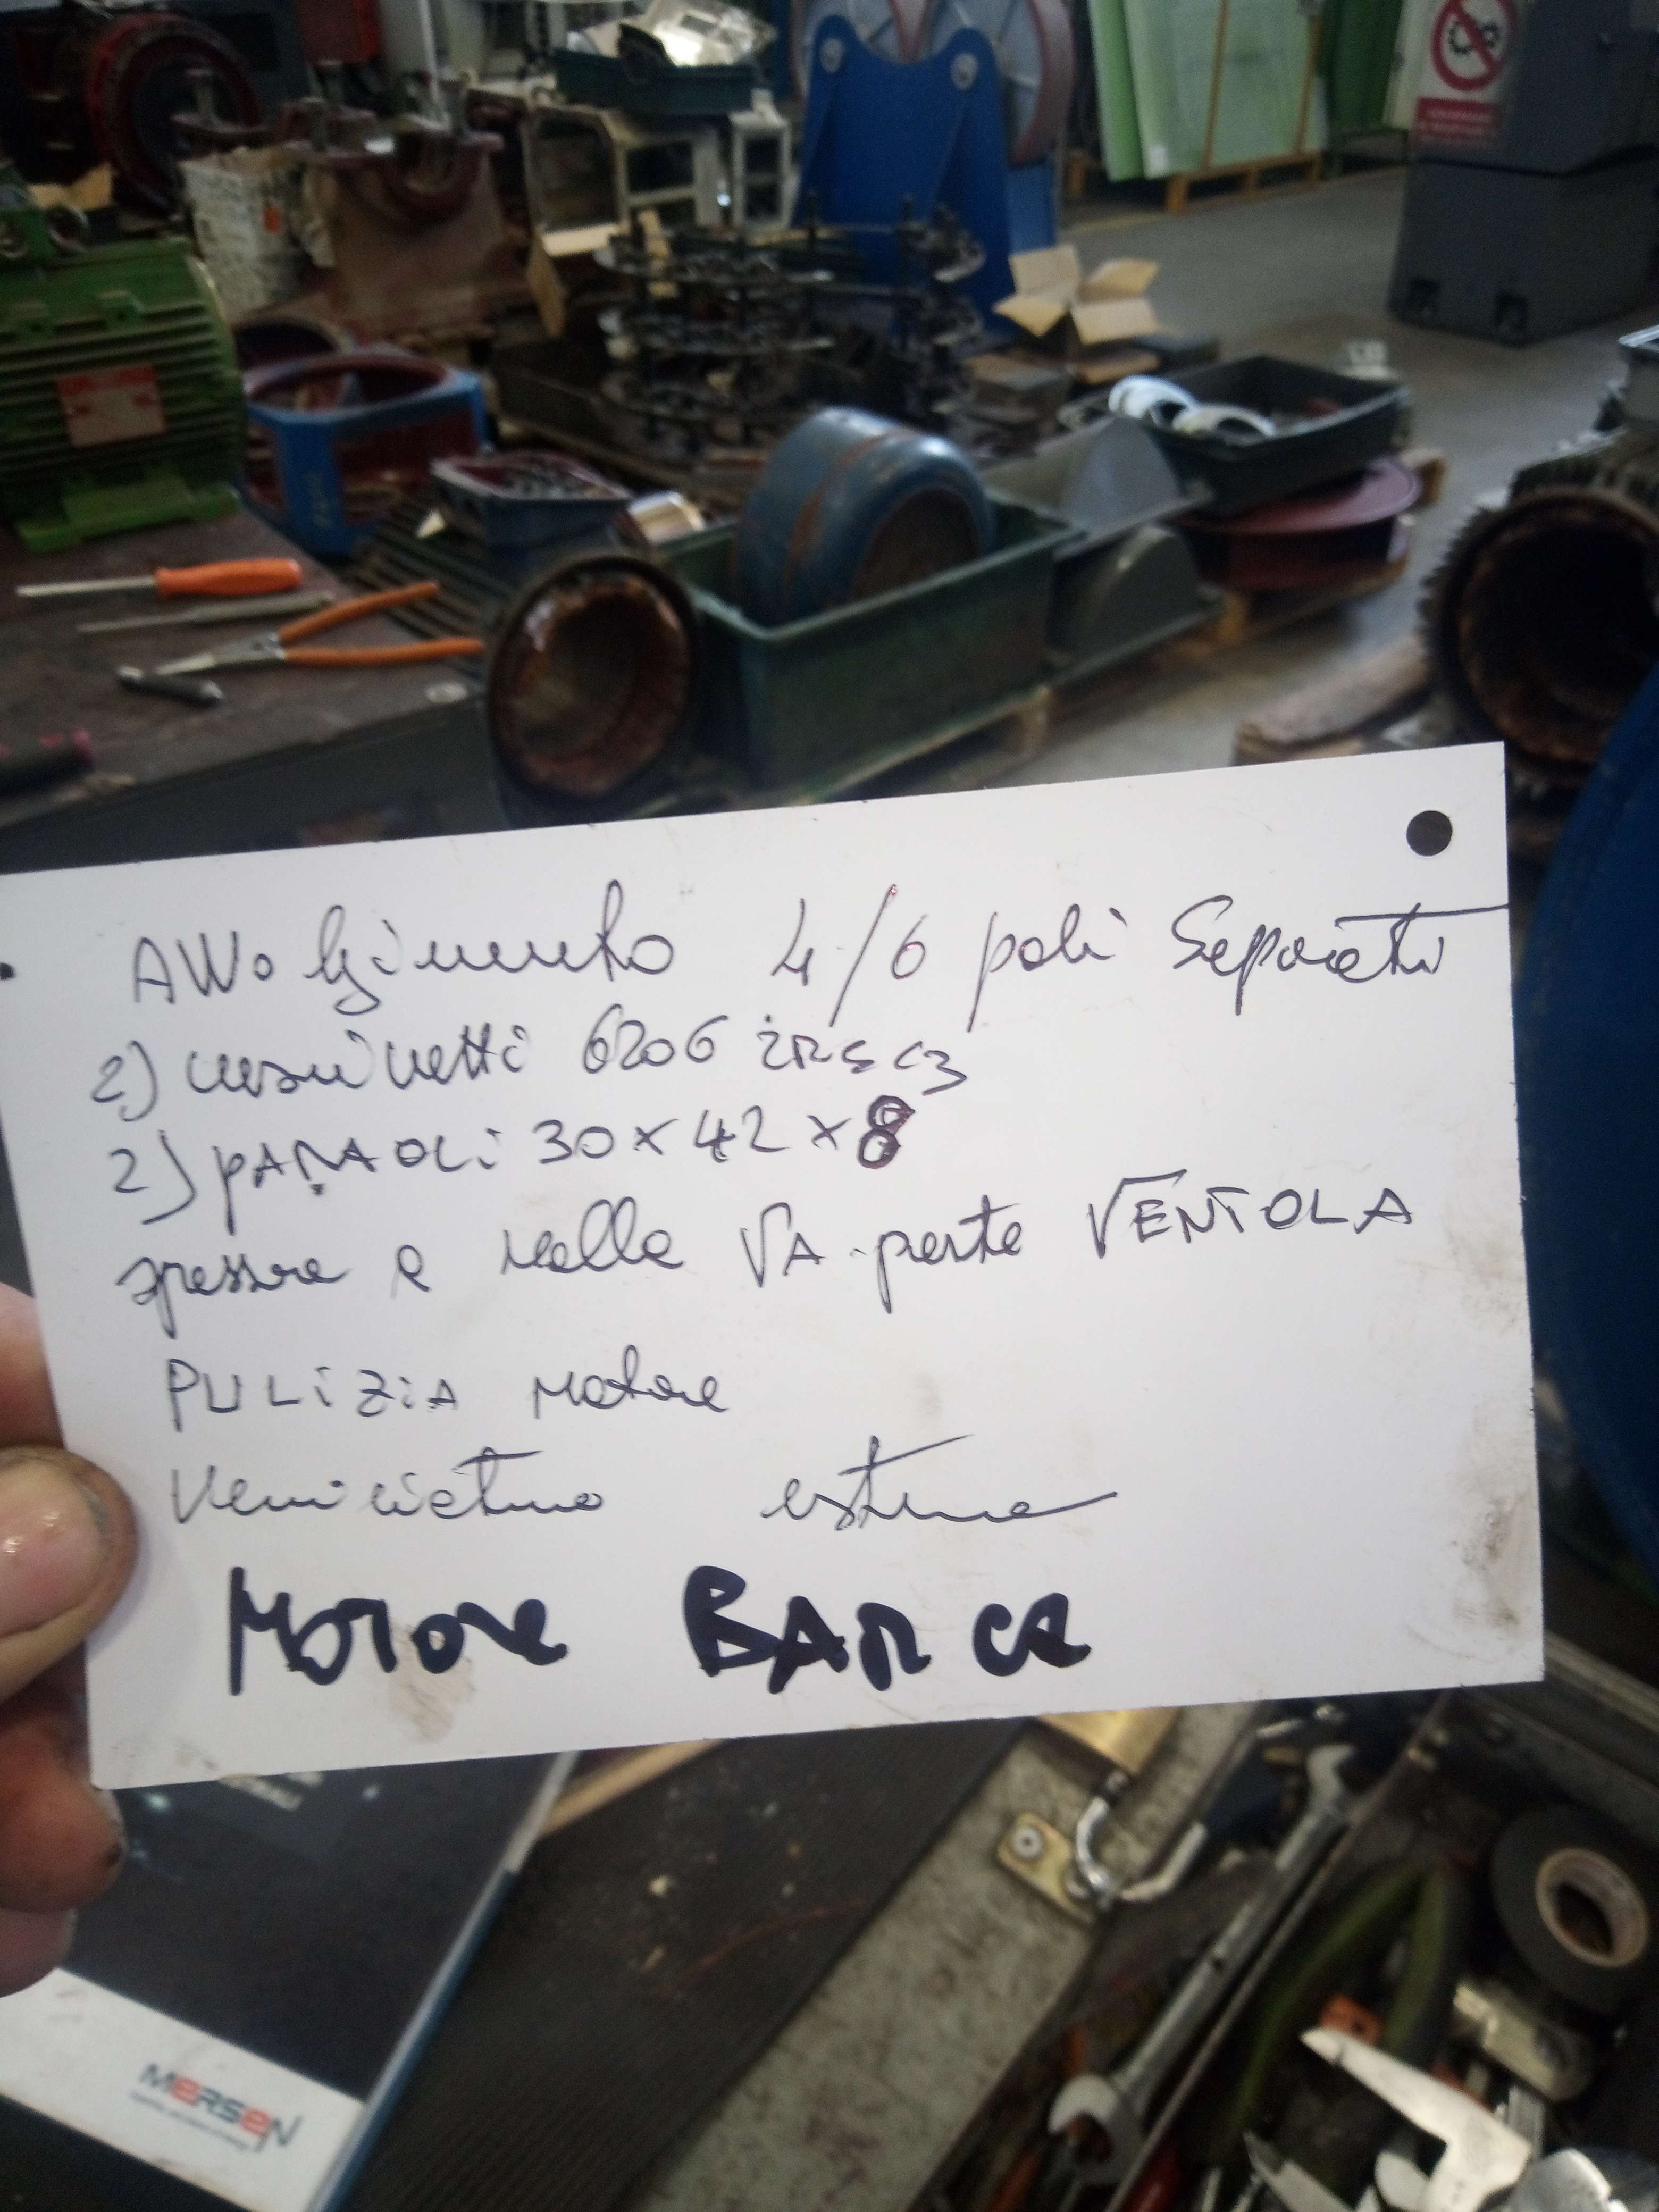 AVVolgimento 4/6 poli Separati
2) cuscinetti 6206 2RS C3
2) pARAOLi 30 x 42 x 8
spessore e molla VA parte VENTOLA
PULiZiA motore
Verniciatura esterna
MOTORE BARCA
MERSEN